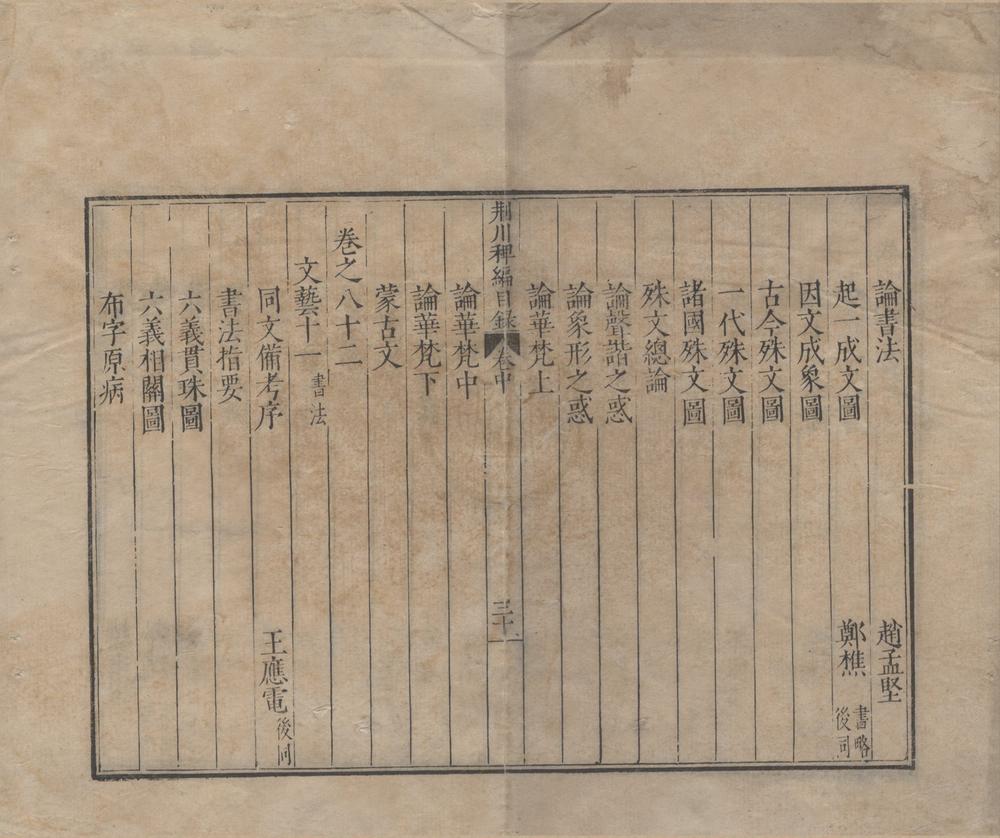 論書法 趙孟堅
起一成文圖 鄭樵 書略後同
因文成象圖
古今殊文圖
一代殊文圖
諸國殊文圖
殊文總論
論聲諧之惑
論象形之惑
論華梵上
荆川稗編目錄 卷中 三十一
論華梵中
論華梵下
蒙古文
卷之八十二
文藝十一 書法
同文備考序 王應電 後同
書法指要
六義貫珠圖
六義相關圖
布字原病